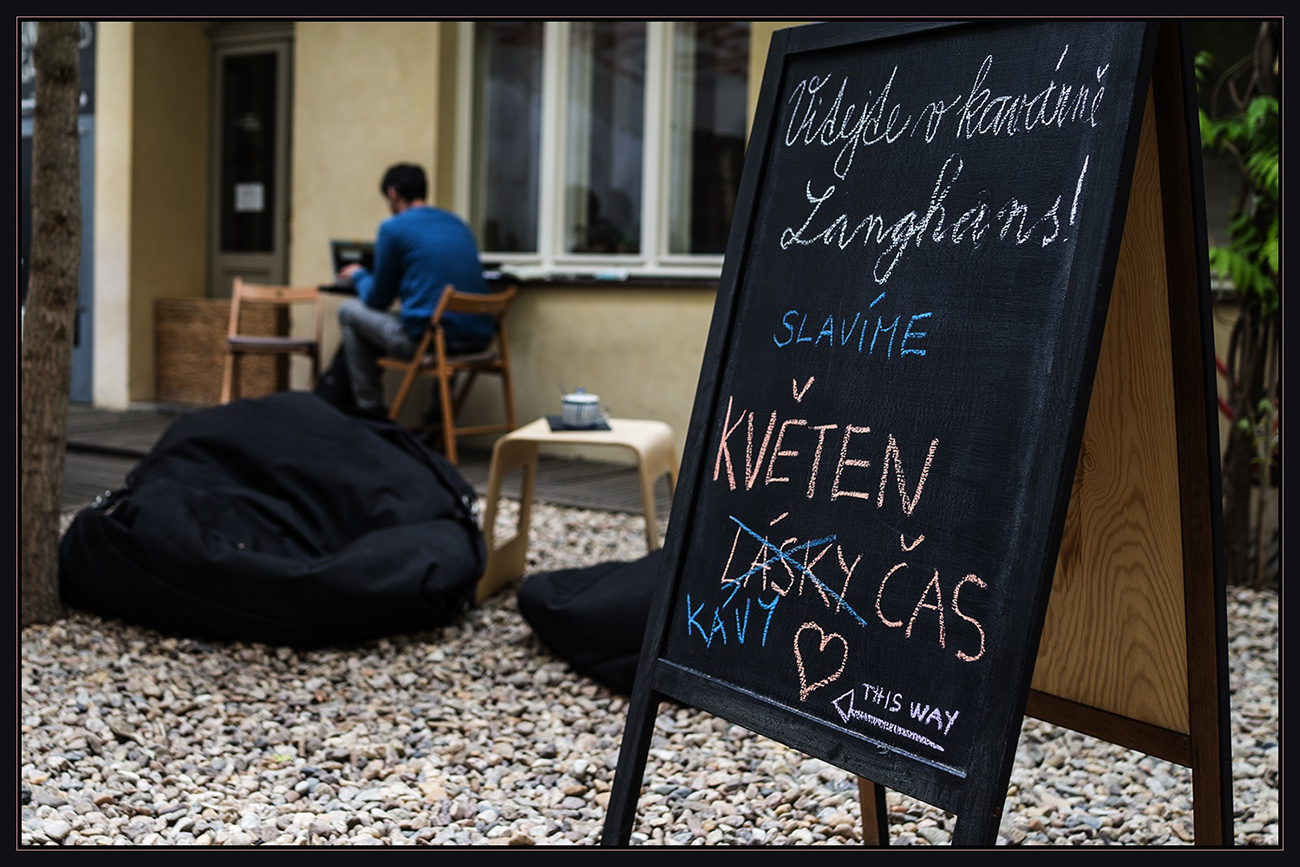 Vítejte v kavárně
Langhans!
SLAVÍME
KVĚTEN
LÁSKY ČAS
KÁVY
THIS WAY